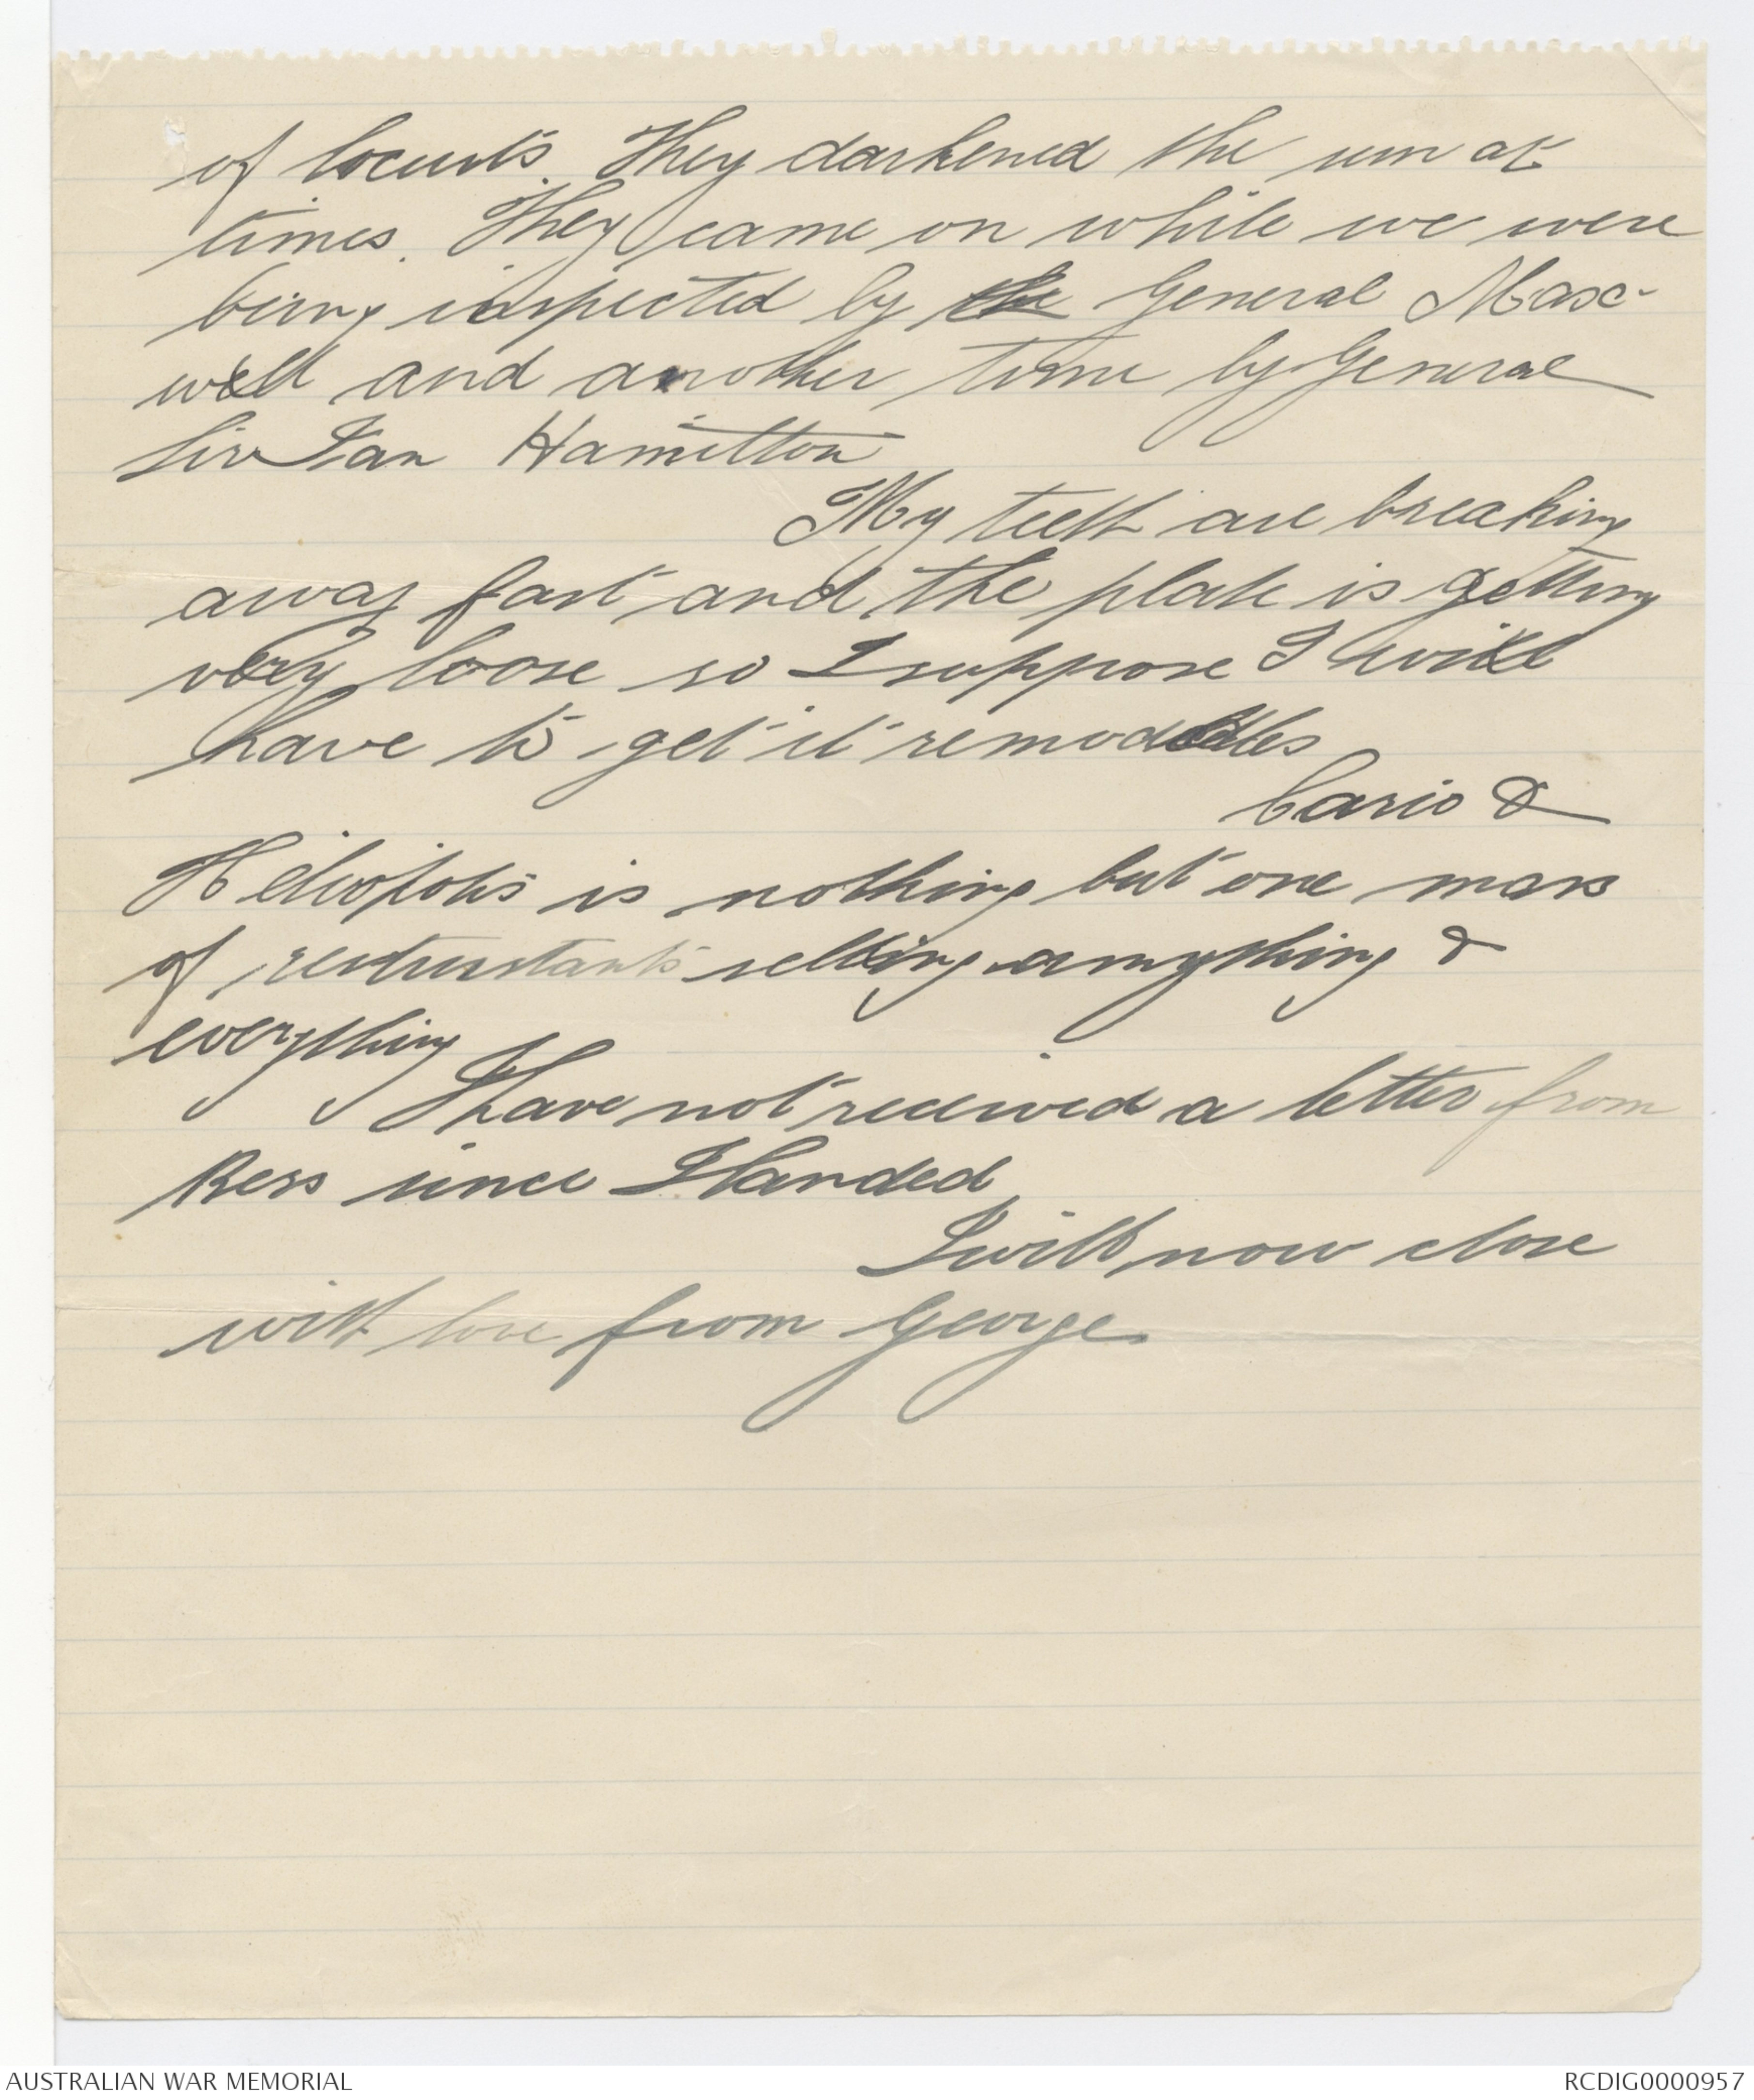 of locusts. They darkened the sun at
times. They came on while we were
being inspected by the General Max-
well and another time by General
Sir Ian Hamilton
My teeth are breaking
away fast and the plate is getting
very loose so I suppose I will
have to get it
Cario &
Heliopolis is nothing but one mass
of selling anything &
everything
I have not received a letter from
Bess since I landed
I will now close
with love from George.
AUSTRALIAN WAR MEMORIAL
RCDIG0000957